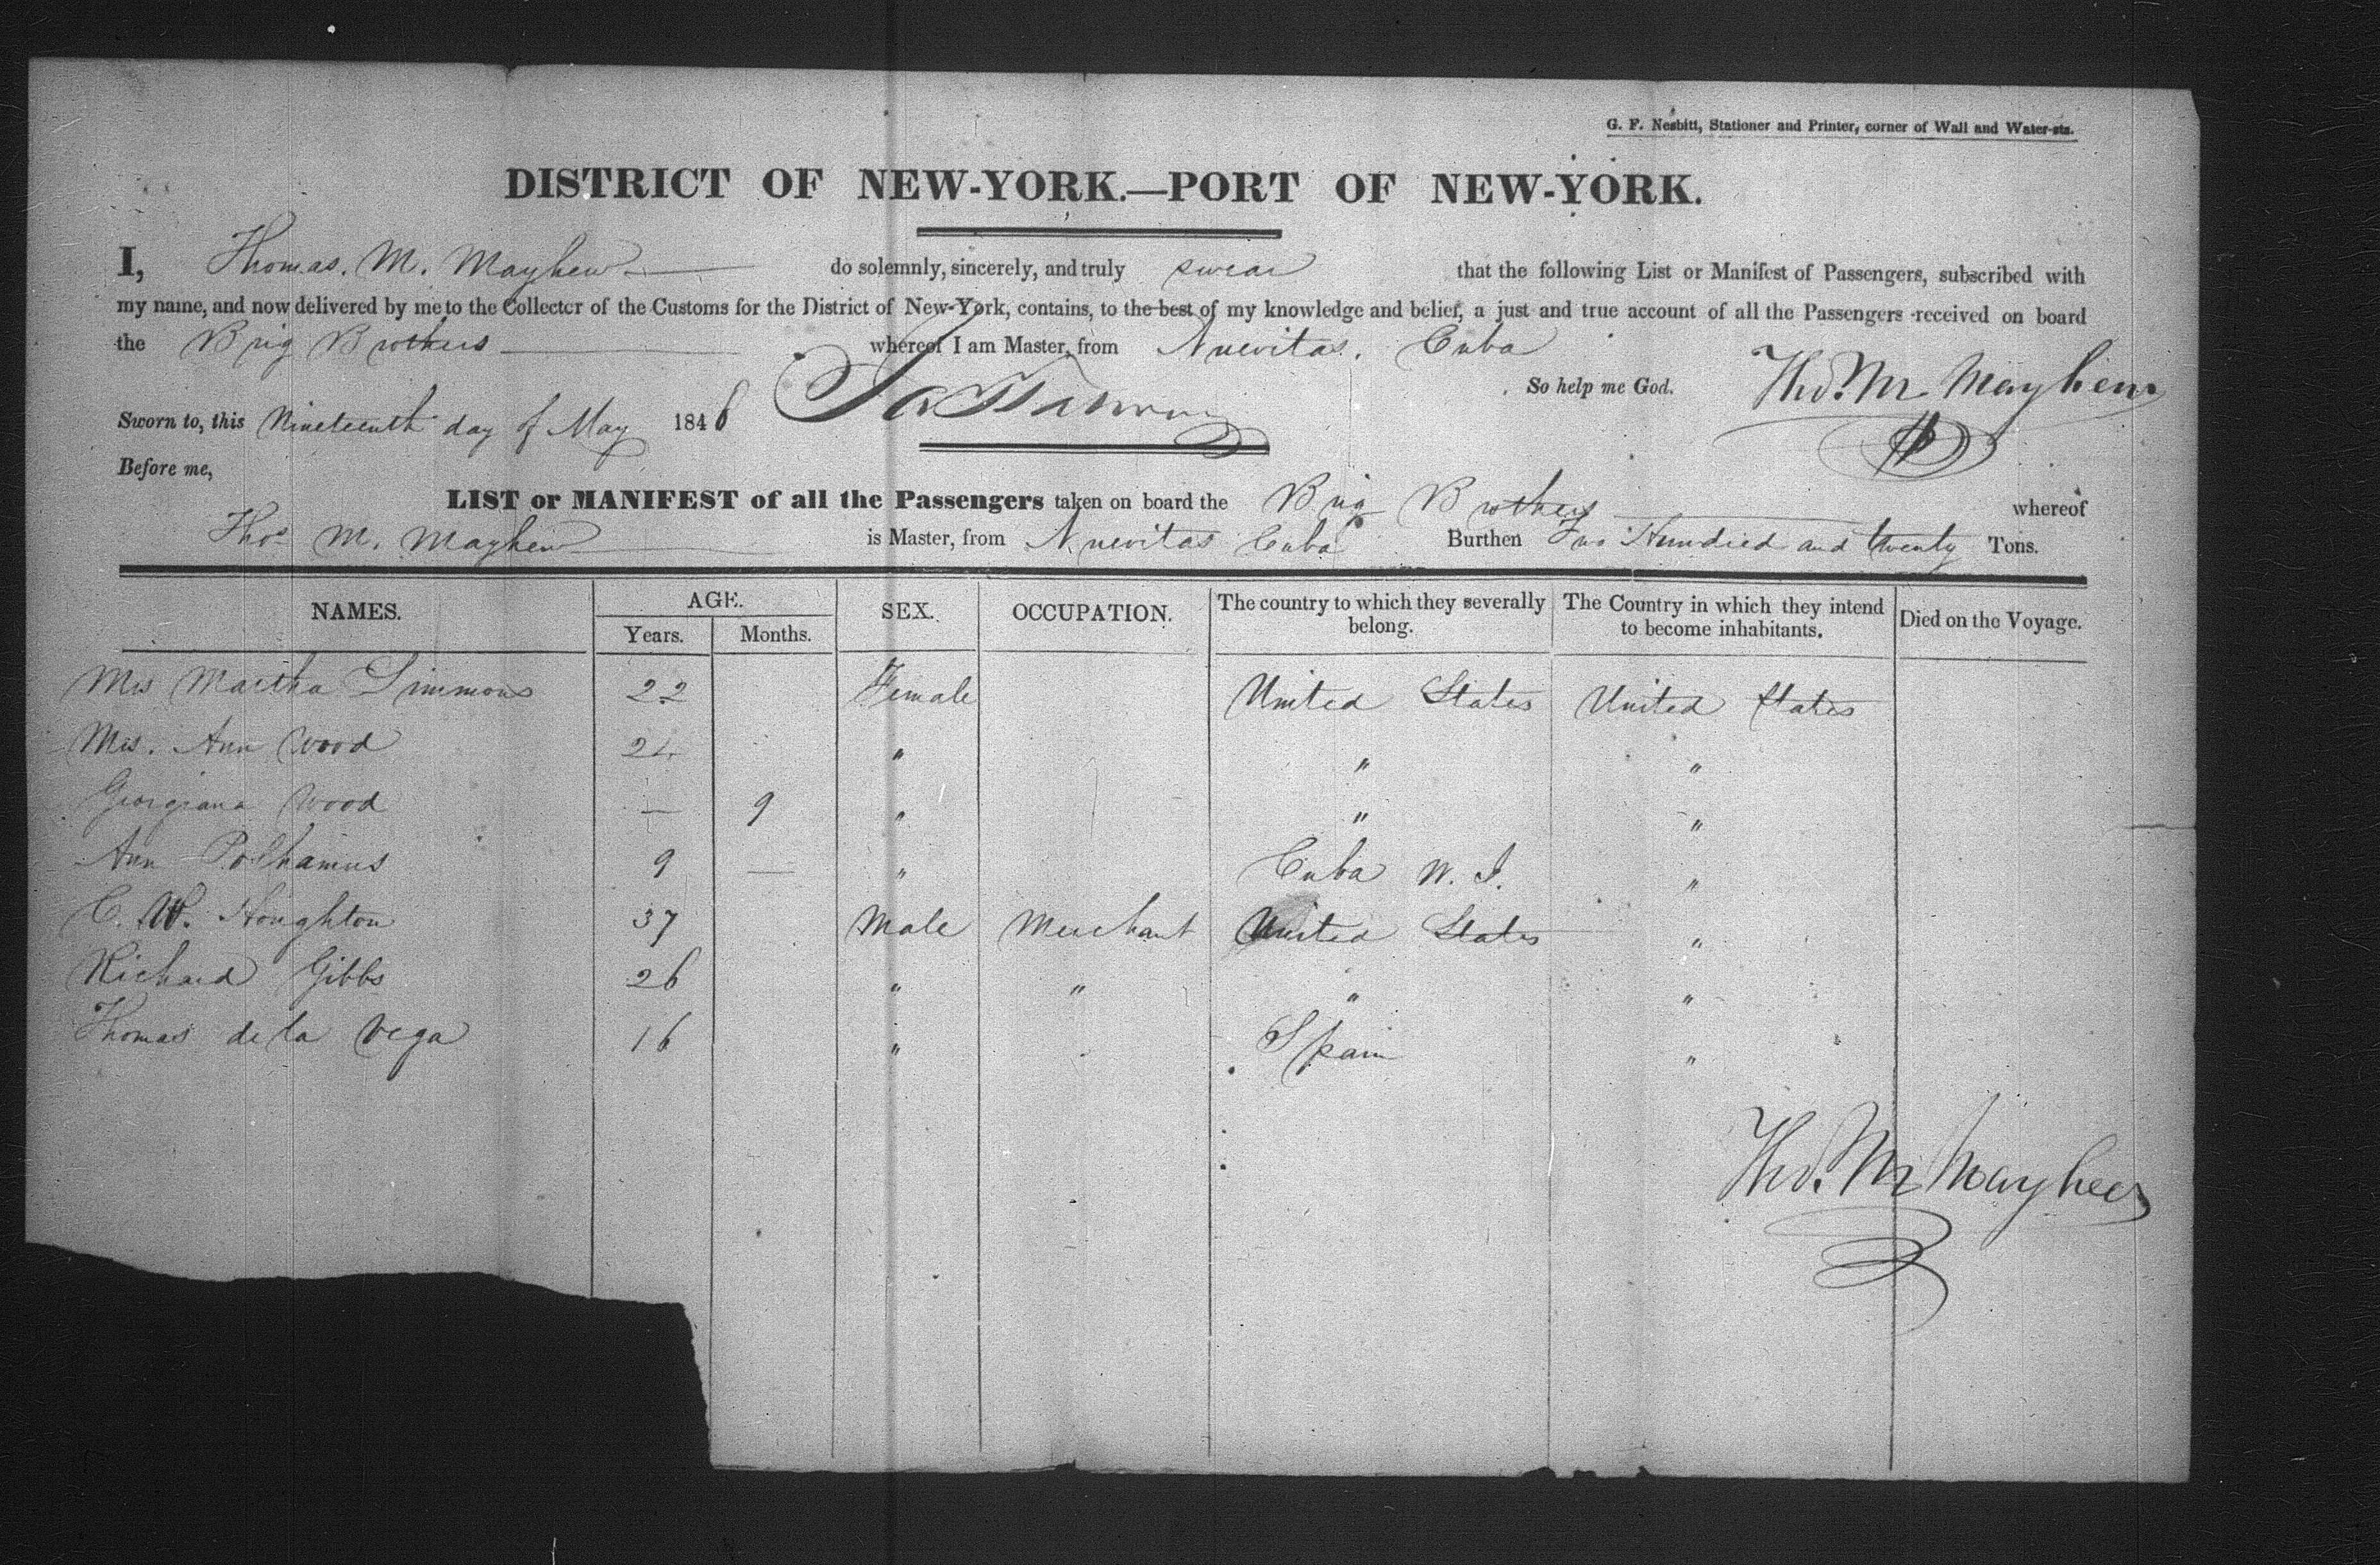 G. F. Nesbitt, Stationer and Printer, corner of Wall and Water-sts.
DISTRICT OF NEW-YORK.—PORT OF NEW-YORK.
I, Thomas. M. Mayhew do solemnly, sincerely, and truly swear that the following List or Manifest of Passengers, subscribed with
my name, and now delivered by me to the Collector of the Customs for the District of New-York, contains, to the best of my knowledge and belief, a just and true account of all the Passengers received on board
the Brig Brothers whereof I am Master, from Nuevitas, Cuba
So help me God. Tho. M. Mayhew
Sworn to, this Nineteenth day of May 1846
Before me,
LIST or MANIFEST of all the Passengers taken on board the Brig Brothers whereof
Thos M. Mayhew is Master, from Nuevitas Cuba Burthen Two Hundred and twenty Tons.
NAMES. AGE. Years. Months. SEX. OCCUPATION. The country to which they severally belong. The Country in which they intend to become inhabitants. Died on the Voyage.
Mrs Martha Simmons 22 Female United States United States
Mrs. Ann Wood " " "
Georgiana Wood — 9 " " "
Ann Polhamus 9 — " Cuba W. I. "
C. W. Houghton 37 Male Merchant United States "
Richard Gibbs 26 " " " "
Thomas de la Vega 16 " Spain "
Tho. M Mayhew